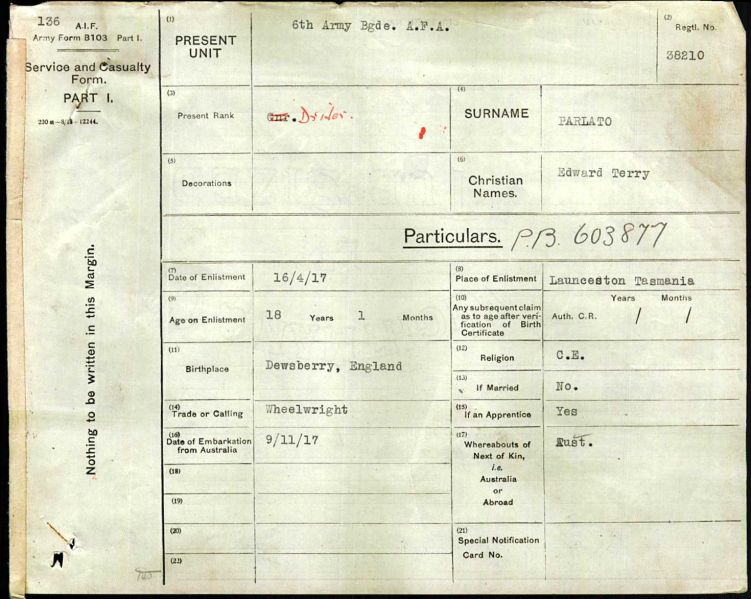 136
A.I.F.
Army Form B103 Part I.
Service and Casualty
Form.
PART I.
Nothing to be written in this Margin.
(1)
PRESENT
UNIT
6th Army Bgde. A.F.A.
(2)
Regtl. No.
38210
(3)
Present Rank
Gnr. Driver.
(4)
SURNAME
PARLATO
(5)
Decorations
(6)
Christian
Names.
Edward Terry
Particulars. P.B. 603877
(7)
Date of Enlistment
16/4/17
(8)
Place of Enlistment
Launceston Tasmania
(9)
Age on Enlistment
18 Years 1 Months
(10)
Any subsequent claim
as to age after veri-
fication of Birth
Certificate
Years Months
Auth. C.R. / /
(11)
Birthplace
Dewsberry, England
(12)
Religion
C.E.
(13)
If Married
No.
(14)
Trade or Calling
Wheelwright
(15)
If an Apprentice
Yes
(16)
Date of Embarkation
from Australia
9/11/17
(17)
Whereabouts of
Next of Kin,
i.e.
Australia
or
Abroad
Aust.
(18)
(19)
(20)
(21)
Special Notification
Card No.
(22)